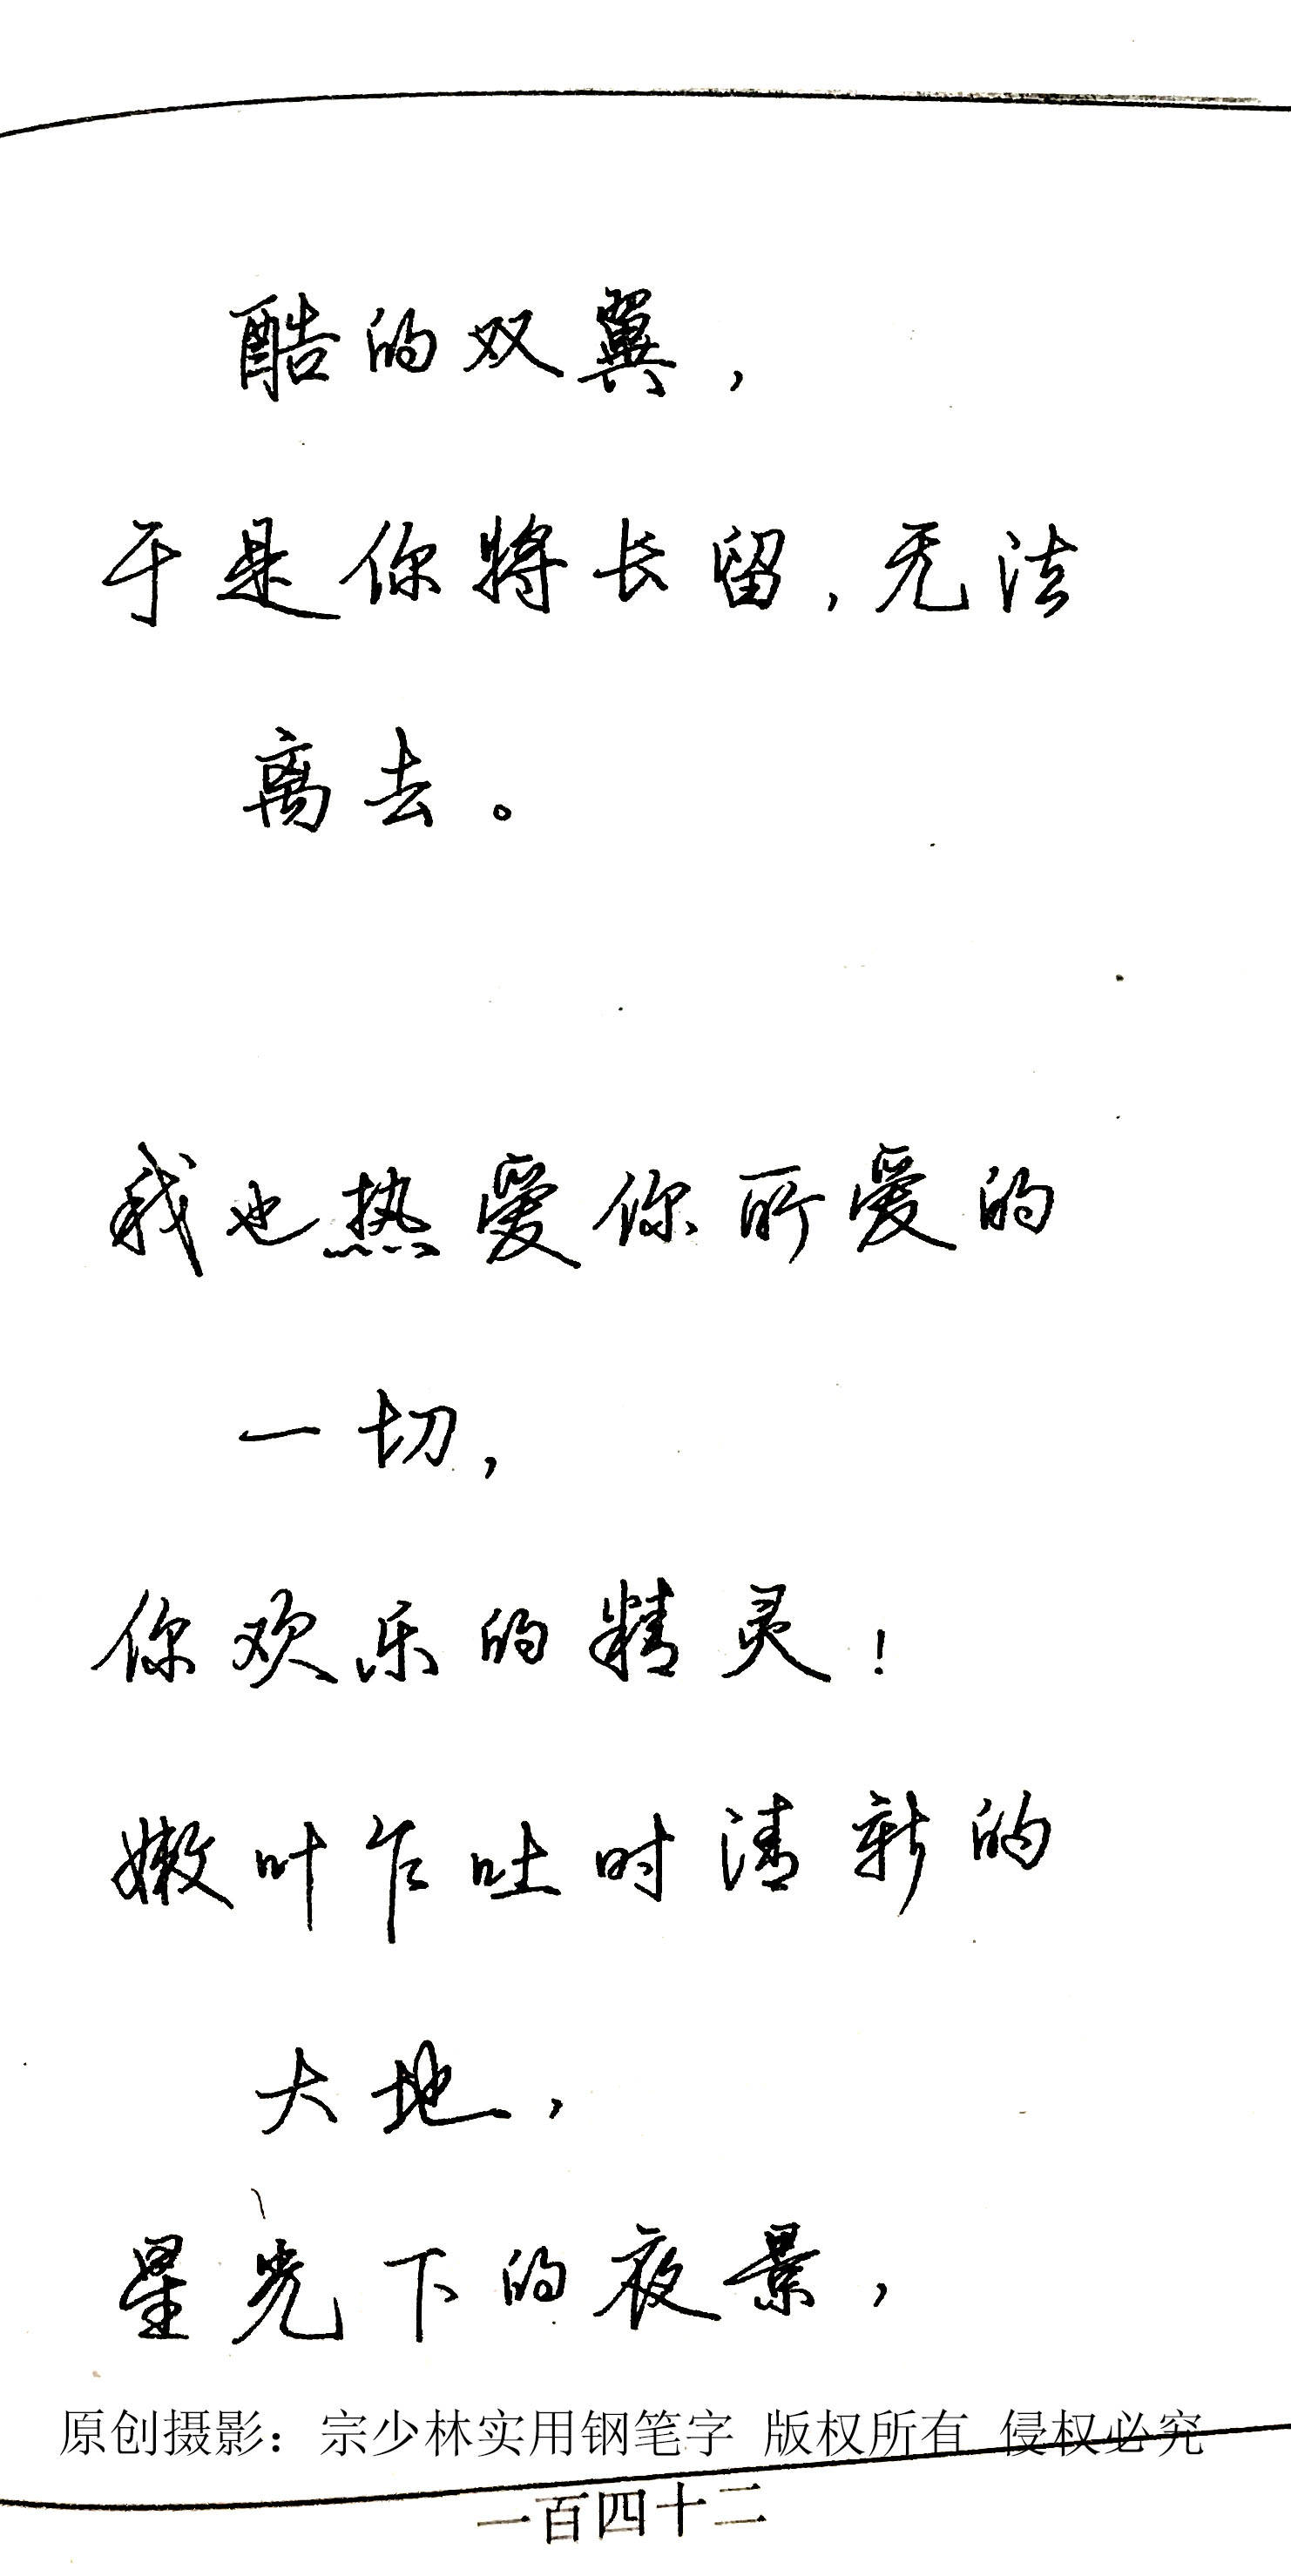 酷的双翼，
于是你将长留，无法
离去。
我也热爱你所爱的
一切，
你欢乐的精灵！
嫩叶乍吐时清新的
大地，
星光下的夜景，
原创摄影：宗少林实用钢笔字 版权所有 侵权必究
一百四十二